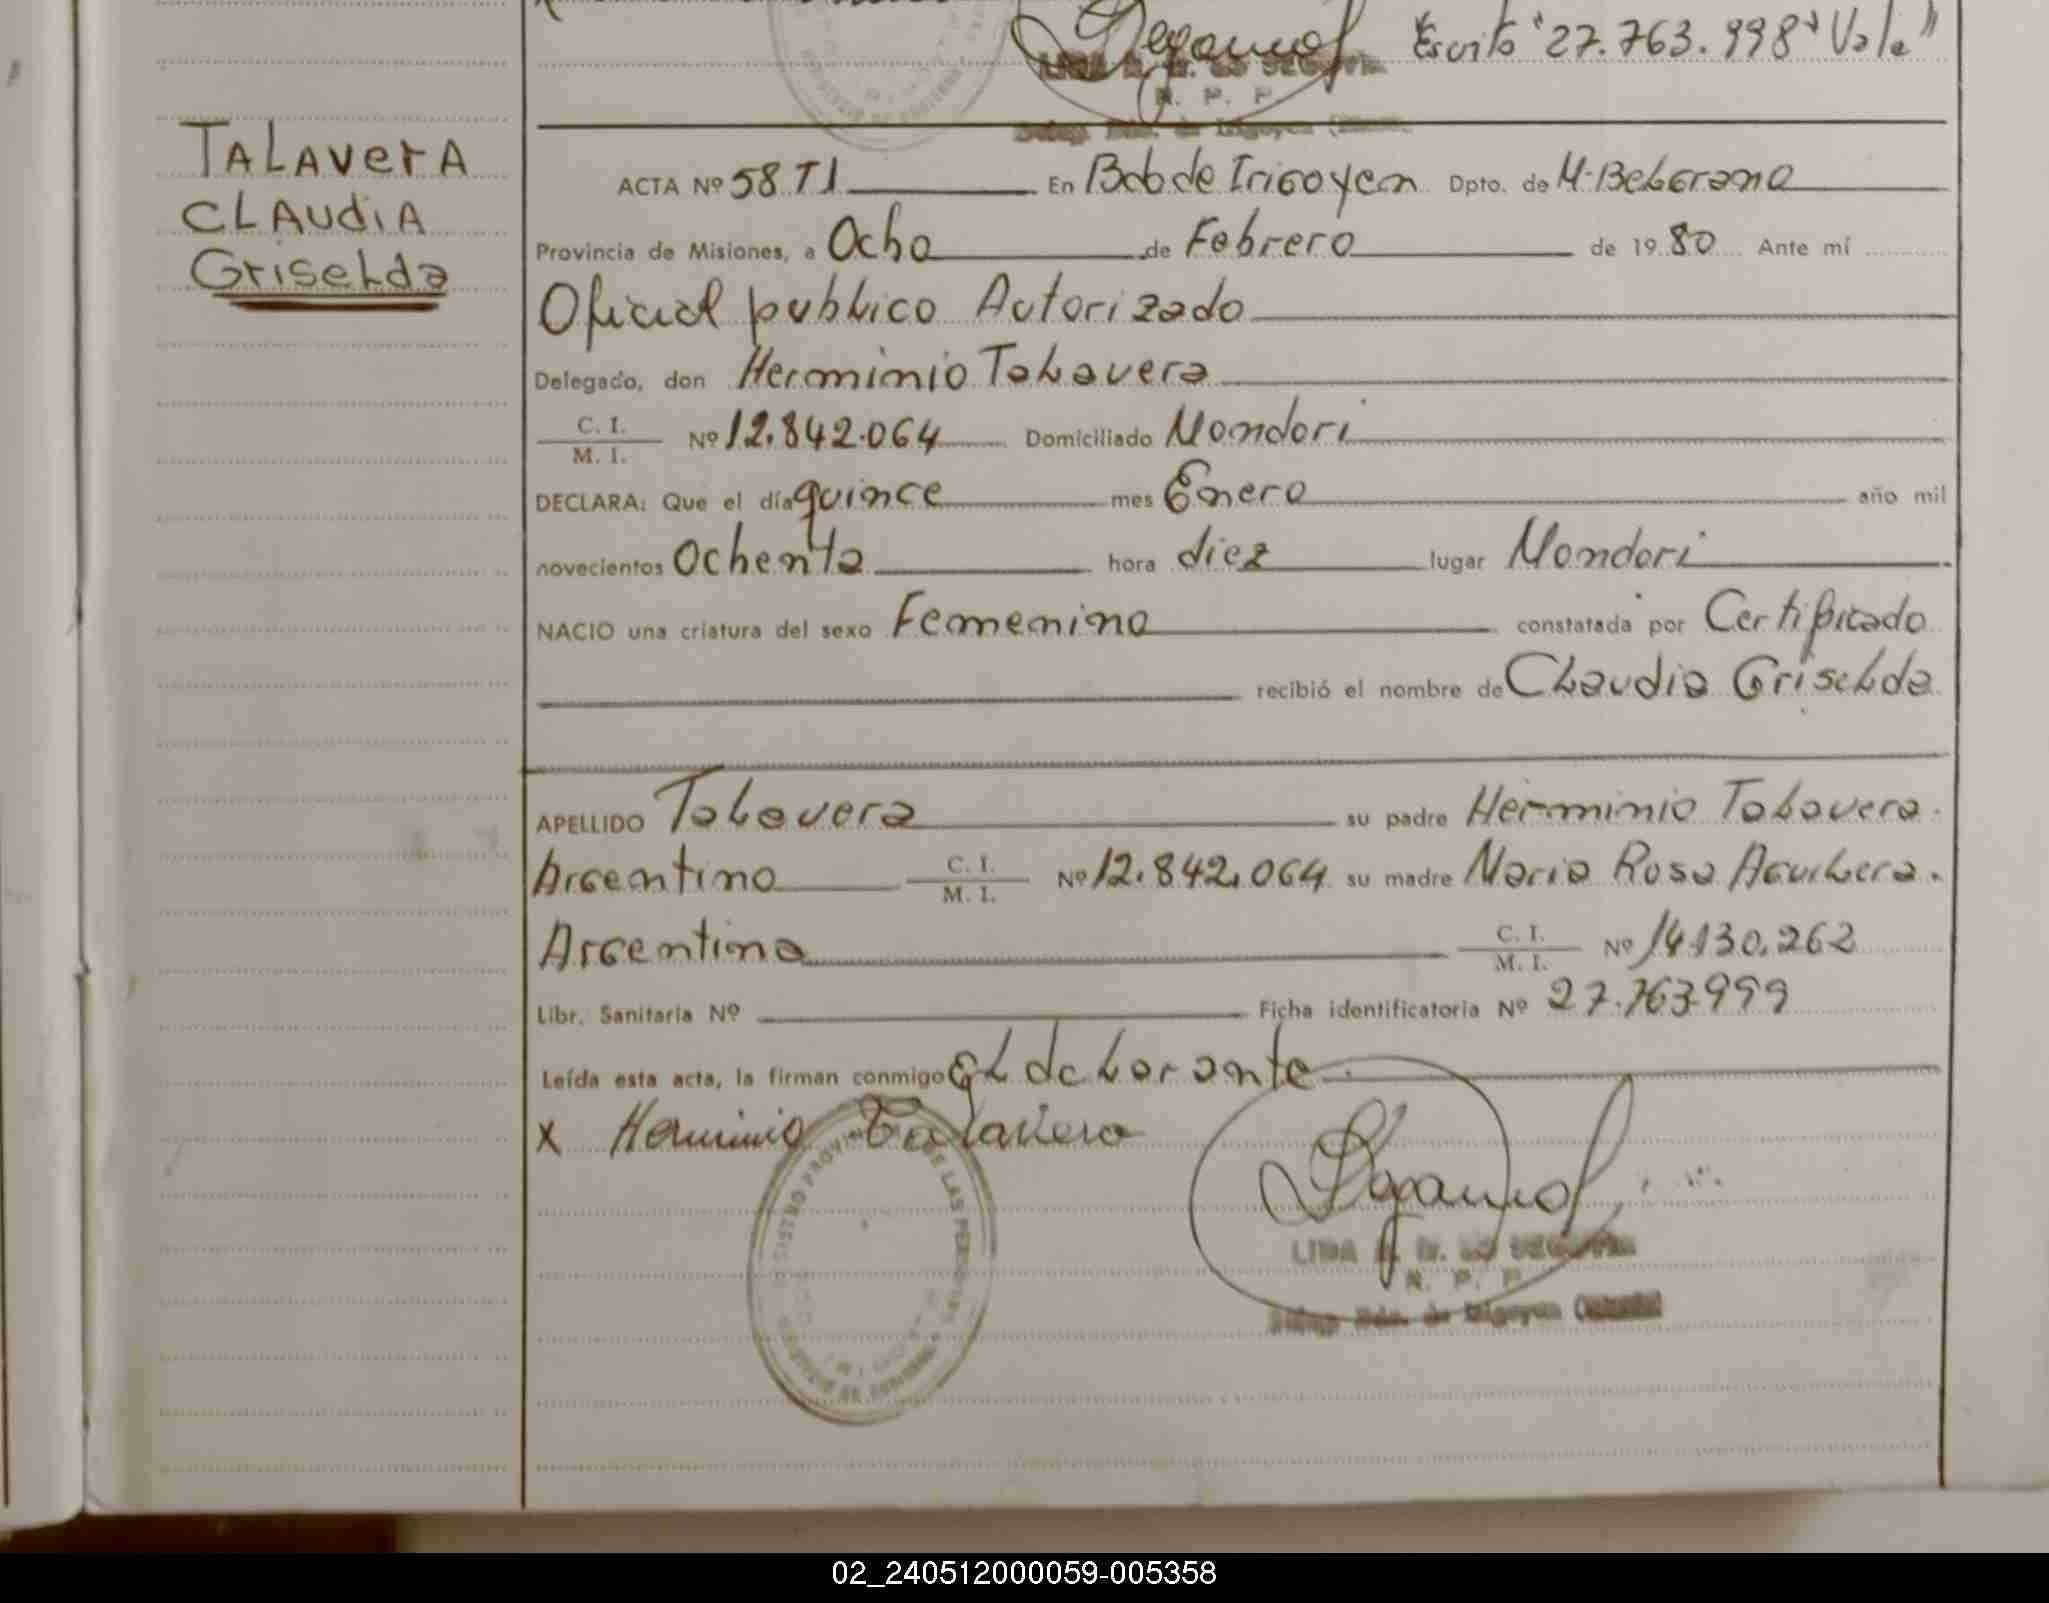 Escrito "27.763.998" Vale"
N. P. P
TALAVerA
CLAUdiA
GriseLda
ACTA Nº 58 T1 En Bdo de Irigoyen Dpto. de M. Belgrano
Provincia de Misiones, a Ocho de Febrero de 19 80 Ante mí
Oficial publico Autorizado
Delegado, don Herminio Talavera
C. I.
M. I. Nº 12.842.064 Domiciliado Mondori
DECLARA: Que el día quince mes Enero año mil
novecientos Ochenta hora diez lugar Mondori
NACIO una criatura del sexo Femenino constatada por Certificado
recibió el nombre de Claudia Griselda
APELLIDO Talavera su padre Herminio Talavera.
Argentino C. I.
M. I. Nº 12.842.064 su madre Maria Rosa Aguilera.
Argentina C. I.
M. I. Nº 14.130.262
Libr. Sanitaria Nº Ficha identificatoria Nº 27.763.999
Leída esta acta, la firman conmigo El declarante
X Herminio Talavera
DE LAS PERSONAS
N. P. P
02_240512000059-005358